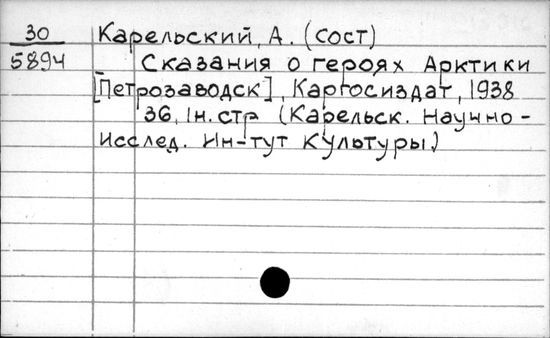 30 Карельский, А. (сост)
5894 Сказания о героях Арктики
[Петрозаводск], Каргосиздат, 1938
36, 1н. стр (Карельск. Научно-
исслед. Ин-тут Культуры)